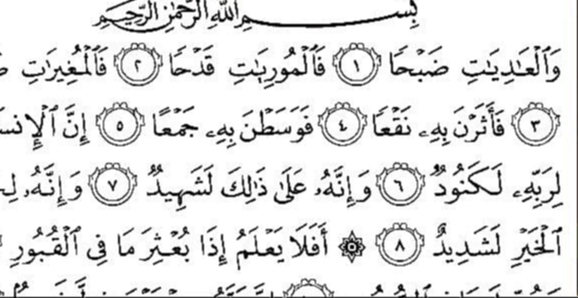 بِسْمِ ٱللَّهِ ٱلرَّحْمَٰنِ ٱلرَّحِيمِ
وَٱلْعَٰدِيَٰتِ ضَبْحًا ١ فَٱلْمُورِيَٰتِ قَدْحًا ٢ فَٱلْمُغِيرَٰتِ
٣ فَأَثَرْنَ بِهِۦ نَقْعًا ٤ فَوَسَطْنَ بِهِۦ جَمْعًا ٥ إِنَّ
لِرَبِّهِۦ لَكَنُودٌ ٦ وَإِنَّهُۥ عَلَىٰ ذَٰلِكَ لَشَهِيدٌ ٧ وَإِنَّهُۥ
ٱلْخَيْرِ لَشَدِيدٌ ٨ ۞ أَفَلَا يَعْلَمُ إِذَا بُعْثِرَ مَا فِى ٱلْقُبُورِ